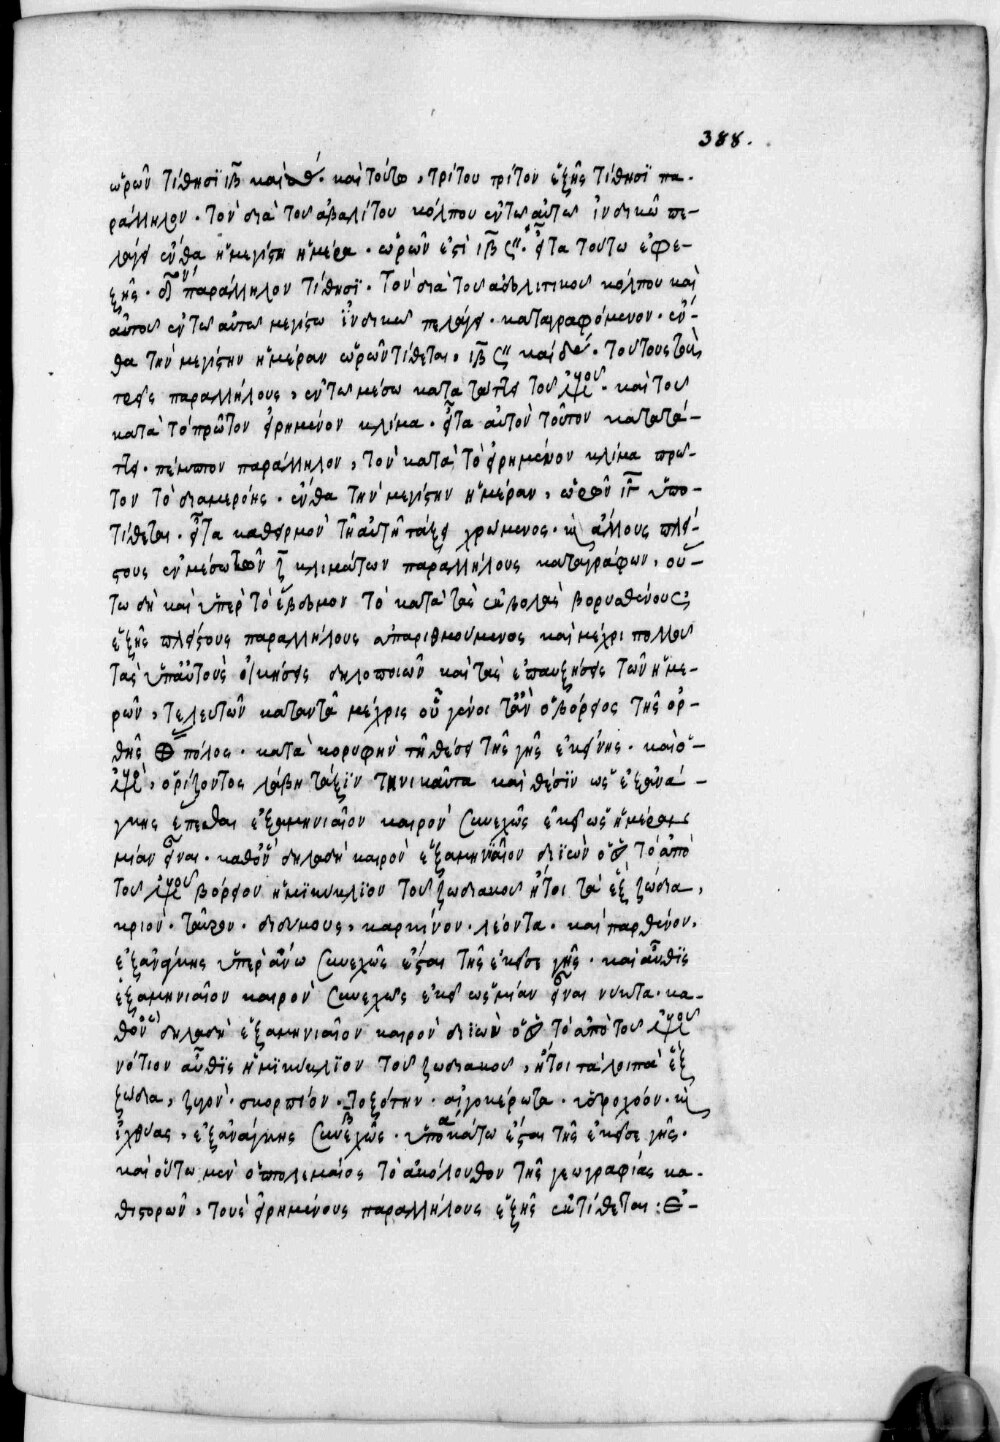 388.
ὡρῶν τίθησϊ ιβ καὶ δ΄. καὶ τούτω, τρίτου τρίτον ἑξῆς τίθησϊ πα-
ράλληλον. τὸν διὰ τοῦ ἀβαλίτου κόλπου ἐν τῶ αὐτῶ ἰνδικῶ πε-
λάγει ἔνθα ἡ μεγίστη ἡμέρα. ὡρῶν ἐστὶ ιβ ς״. εἶτα τούτω ἐφε-
ξῆς. δ^ον παράλληλον τίθησϊ. τὸν διὰ τοῦ ἀδουλιτικοῦ κόλπου καὶ
αὐτοῦ ἐν τῶ αὐτῶ μεγίστω ἰνδικῶ πελάγει. καταγραφόμενον. ἔν-
θα τὴν μεγίστην ἡμέραν ὡρῶν τίθεται, ιβ ς״ καὶ δ΄. τούτους τοὺς
παραλλήλους, ἐν τῶ μέσω κατατάττει τοῦ ἰσημερινοῦ. καὶ τοῦ
κατὰ τὸ πρῶτον εἰρημένον κλίμα. εἶτα αὐτὸν τοῦτον κατατά-
ττει. πέμπτον παράλληλον, τὸν κατὰ τὸ εἰρημένον κλίμα πρῶ-
τον τὸ διαμερόης. ἔνθα τὴν μεγίστην ἡμέραν, ὡρῶν ιγ ὑπο-
τίθεται. εἶτα καθειρμὸν τῆ αὐτῆ τάξει χρώμενος. καὶ ἄλλους πλεί-
στους ἐν μέσω τῶν ζ κλιμάτων παραλλήλους καταγράφων. οὕ-
τω δὴ καὶ ὑπὲρ τὸ ἕβδομον τὸ κατὰ τὰς ἐκβολὰς βορυσθένους,
ἑξῆς πλείστους παραλλήλους ἀπαριθμούμενος καὶ μέχρι πολλοῦ
τὰς ὑπ' αὐτοὺς οἰκήσεις δηλοποιῶν καὶ τὰς ἐπαυξήσεις τῶν ἡμε-
ρῶν, τελευτῶν καταντᾶ μέχρις οὗ γένοιτ' ἂν ὁ βόρειος τῆς ὀρ-
θῆς πόλος. κατὰ κορυφὴν τῆ θέσει τῆς γῆς ἐκείνης. καὶ ὁ
ἰσημερινὸς, ὁρίζοντος λάβη τάξϊν τηνικαῦτα καὶ θέσϊν ὡς ἐξ ἀνά-
γκης ἕπεσθαι ἑξαμηνιαῖον καιρὸν συνεχῶς ἐκεῖ ὡς ἡμέραν
μίαν εἶναι. καθ' ὃν δηλαδὴ καιρὸν ἑξαμηνιαῖον διϊὼν ὁ ἥλιος τὸ ἀπὸ
τοῦ ἰσημερινοῦ βόρειον ἡμϊκύκλϊον τοῦ ζωδιακοῦ ἤτοι τὰ ἓξ ζώδια,
κριὸν. ταῦρον. διδύμους, καρκίνον. λέοντα. καὶ παρθένον.
ἐξ ἀνάγκης ὑπὲρ ἄνω συνεχῶς ἔσται τῆς ἐκεῖσε γῆς. καὶ αὖθϊς
ἑξαμηνιαῖον καιρὸν συνεχῶς ἐκεῖ ὡς μίαν εἶναι νύκτα. κα-
θ' ὃν δηλαδὴ ἑξαμηνιαῖον καιρὸν διϊὼν ὁ ἥλιος τὸ ἀπὸ τοῦ ἰσημερινοῦ
νότιον αὖθϊς ἡμϊκύκλϊον τοῦ ζωδιακοῦ, ἤτοι τὰ λοιπὰ ἓξ
ζώδια, ζυγὸν. σκορπίον. τοξότην. αἰγοκέρωτα. ὑδροχόον. καὶ
ἰχθύας, ἐξ ἀνάγκης συνεχῶς. ὑποκάτω ἔσται τῆς ἐκεῖσε γῆς.
καὶ οὕτω μὲν ὁ πτολεμαῖος τὸ ἀκόλουθον τῆς γεωγραφίας κα-
θιστορῶν, τοὺς εἰρημένους παραλλήλους ἑξῆς ἐκτίθεται : Ε-